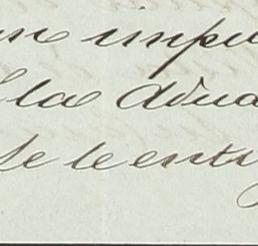 un impu
la Adua
se le entr